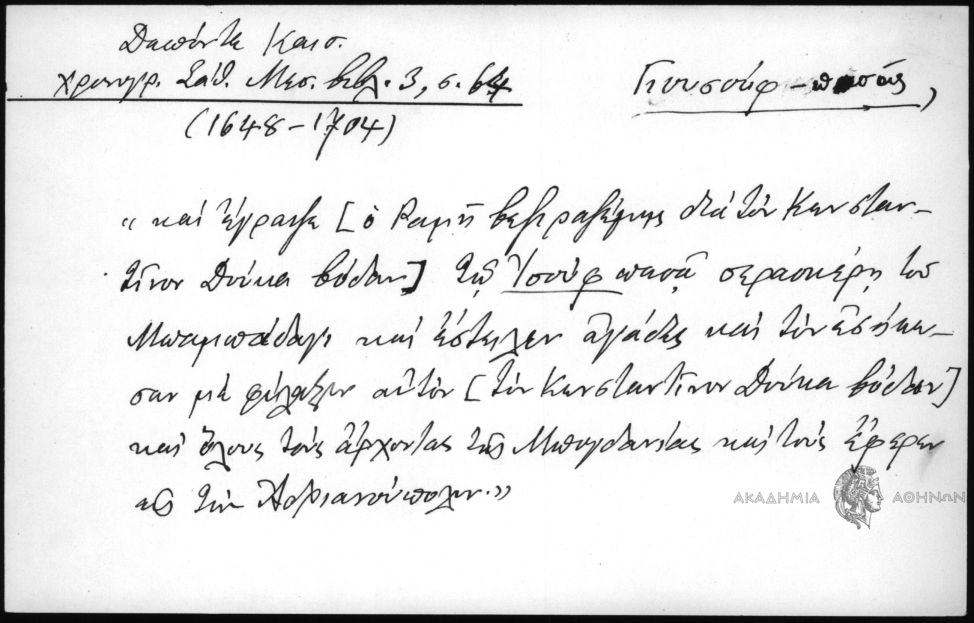 Δαπόντε Καισ.
χρονογρ. Σάθ. Μεσ. βιβλ. 3, σ. 64
(1648-1704)
Γιουσούφ-πασάς,
"καὶ ἔγραψε [ὁ Ραμῆ βεζιραζέμης διὰ τὸν Κωνσταν-
τῖνον Δούκα βόδαν] τῷ Ἰσοὺφ πασᾷ σερασκέρῃ τοῦ
Μπαμπάδαγι καὶ ἔστειλεν ἀγάδες καὶ τὸν ἐσήκω-
σαν μὲ φύλαξιν αὐτὸν [τὸν Κωνσταντῖνον Δούκα βόδαν]
καὶ ὅλους τοὺς ἄρχοντας τῆς Μπογδανίας καὶ τοὺς ἔφερεν
εἰς τὴν Ἀδριανούπολιν."
ΑΚΑΔΗΜΙΑ ΑΘΗΝΩΝ